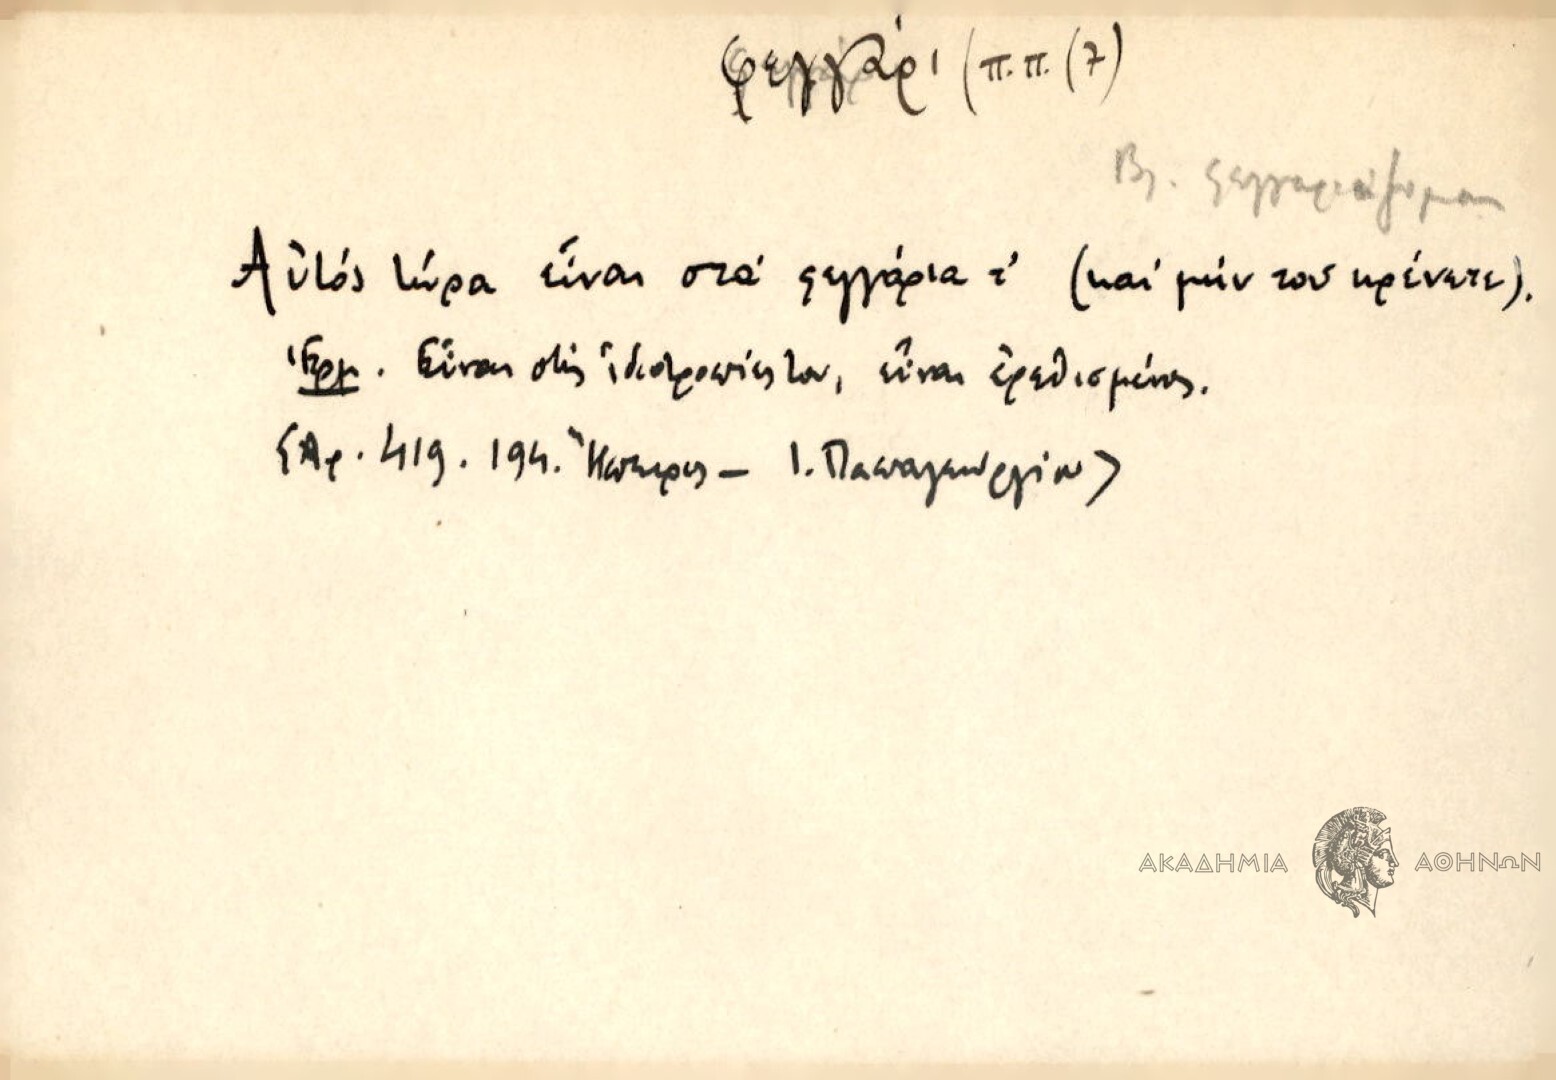 φεγγάρι (π.π. (7)
Βλ. φεγγαριάζομαι
Αὐτός τώρα εἶναι στά φεγγάρια τ' (καί μήν τοῦ κρένετε).
Ἑρμ. Εἶναι στίς ἰδιοτροπίες του, εἶναι ἐρεθισμένος.
{Αρ. 419. 194. Ἤπειρος – Ι. Παπαγεωργίου>
ΑΚΑΔΗΜΙΑ ΑΘΗΝΩΝ